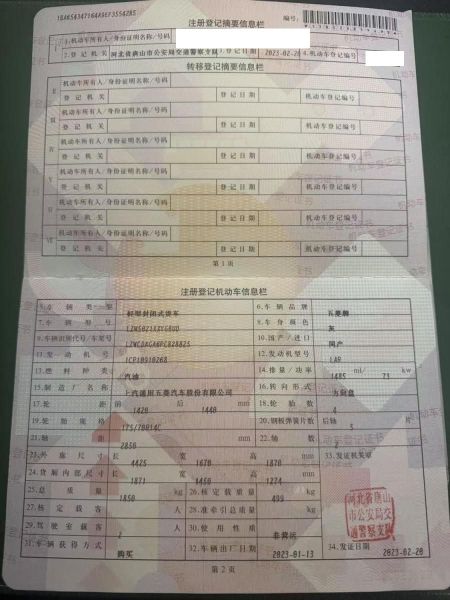 注册登记摘要信息栏
编号:
1.机动车所有人/身份证明名称/号码
2.登记机关 河北省唐山市公安局交通警察支队 3.登记日期 2023-02-20 4.机动车登记编号
转移登记摘要信息栏
机动车所有人/身份证明名称/号码
登记机关 登记日期 机动车登记编号
机动车所有人/身份证明名称/号码
登记机关 登记日期 机动车登记编号
机动车所有人/身份证明名称/号码
登记机关 登记日期 机动车登记编号
机动车所有人/身份证明名称/号码
登记机关 登记日期 机动车登记编号
机动车所有人/身份证明名称/号码
登记机关 登记日期 机动车登记编号
机动车所有人/身份证明名称/号码
登记机关 登记日期 机动车登记编号
第1页
注册登记机动车信息栏
5.车辆类型 轻型封闭式货车 6.车辆品牌 五菱牌
7.车辆型号 8.车身颜色 灰
9.车辆识别代号/车架号 10.国产/进口 国产
11.发动机号 12.发动机型号 LAR
13.燃料种类 汽油 14.排量/功率 1485 ml/ 73 kw
15.制造厂名称 上汽通用五菱汽车股份有限公司 16.转向形式 方向盘
17.轮距 前 1420 后 1440 mm 18.轮胎数 4
19.轮胎规格 175/70R14C 20.钢板弹簧片数 后轴 5
21.轴距 2850 mm 22.轴数 2
23.外廓尺寸 长 4425 宽 1670 高 1870 mm 33.发证机关章
24.货厢内部尺寸 长 1871 宽 1450 高 1274 mm
25.总质量 1850 kg 26.核定载质量 499 kg
27.核定载客 人 28.准牵引总质量 kg
29.驾驶室载客 2 人 30.使用性质 非营运
31.车辆获得方式 购买 32.车辆出厂日期 2023-01-13 34.发证日期 2023-02-20
河北省唐山
市公安局交
通警察支队
第2页